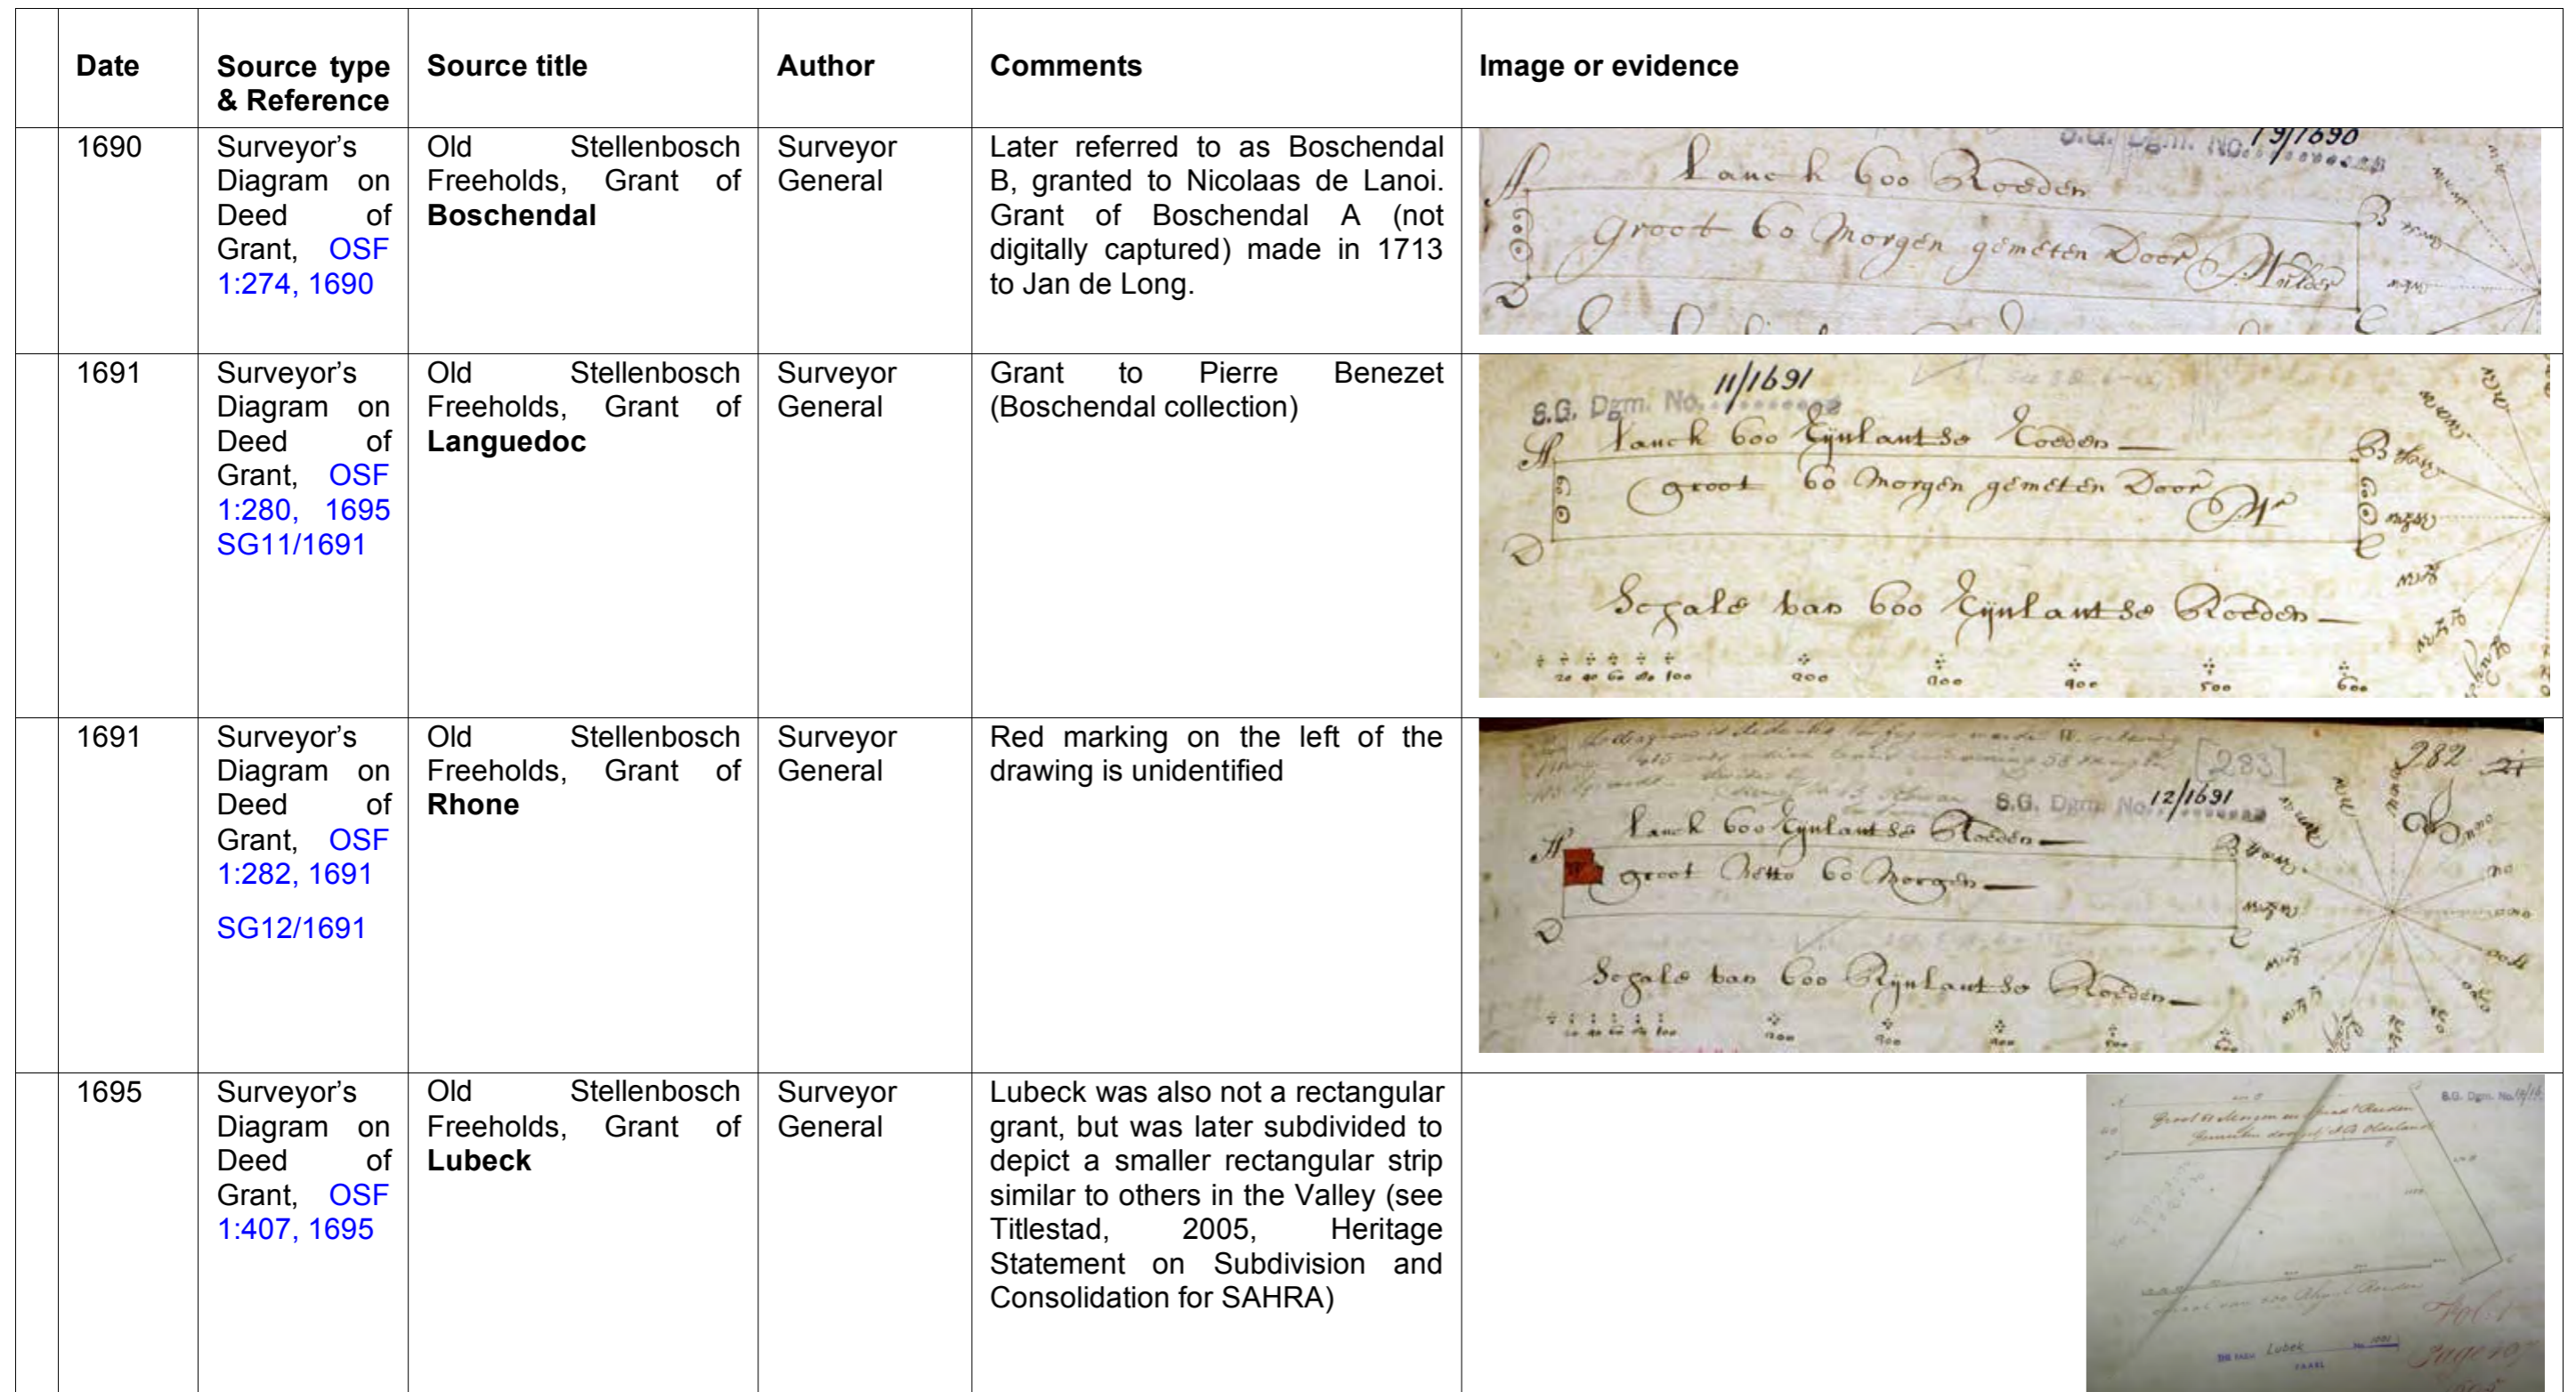 Date
Source type & Reference
Source title
Author
Comments
Image or evidence
1690
Surveyor's
Diagram on
Deed of
Grant, OSF
1:274, 1690
Old Stellenbosch
Freeholds, Grant of
Boschendal
Surveyor
General
Later referred to as Boschendal
B, granted to Nicolaas de Lanoi.
Grant of Boschendal A (not
digitally captured) made in 1713
to Jan de Long.
S.G. Dgm. No. 19/1690
A Lanck 600 Roeden
B
Groot 60 Morgen gemeten Door Mulder
D
C
1691
Surveyor's
Diagram on
Deed of
Grant, OSF
1:280, 1695
SG11/1691
Old Stellenbosch
Freeholds, Grant of
Languedoc
Surveyor
General
Grant to Pierre Benezet
(Boschendal collection)
S.G. Dgm. No. 11/1691
A Lanck 600 Rijnlantse Roeden
B
groot 60 Morgen gemeten Door
D
C
Schale van 600 Rijnlantse Roeden
20 40 60 80 100 200 300 400 500 600
1691
Surveyor's
Diagram on
Deed of
Grant, OSF
1:282, 1691
SG12/1691
Old Stellenbosch
Freeholds, Grant of
Rhone
Surveyor
General
Red marking on the left of the
drawing is unidentified
283
282
S.G. Dgm. No. 12/1691
A Lanck 600 Rijnlantse Roeden
B
groot Netto 60 Morgen
D
C
Schale van 600 Rijnlantse Roeden
20 40 60 80 100 200 300 400 500 600
1695
Surveyor's
Diagram on
Deed of
Grant, OSF
1:407, 1695
Old Stellenbosch
Freeholds, Grant of
Lubeck
Surveyor
General
Lubeck was also not a rectangular
grant, but was later subdivided to
depict a smaller rectangular strip
similar to others in the Valley (see
Titlestad, 2005, Heritage
Statement on Subdivision and
Consolidation for SAHRA)
S.G. Dgm. No.
THE FARM Lubek No
PAARL